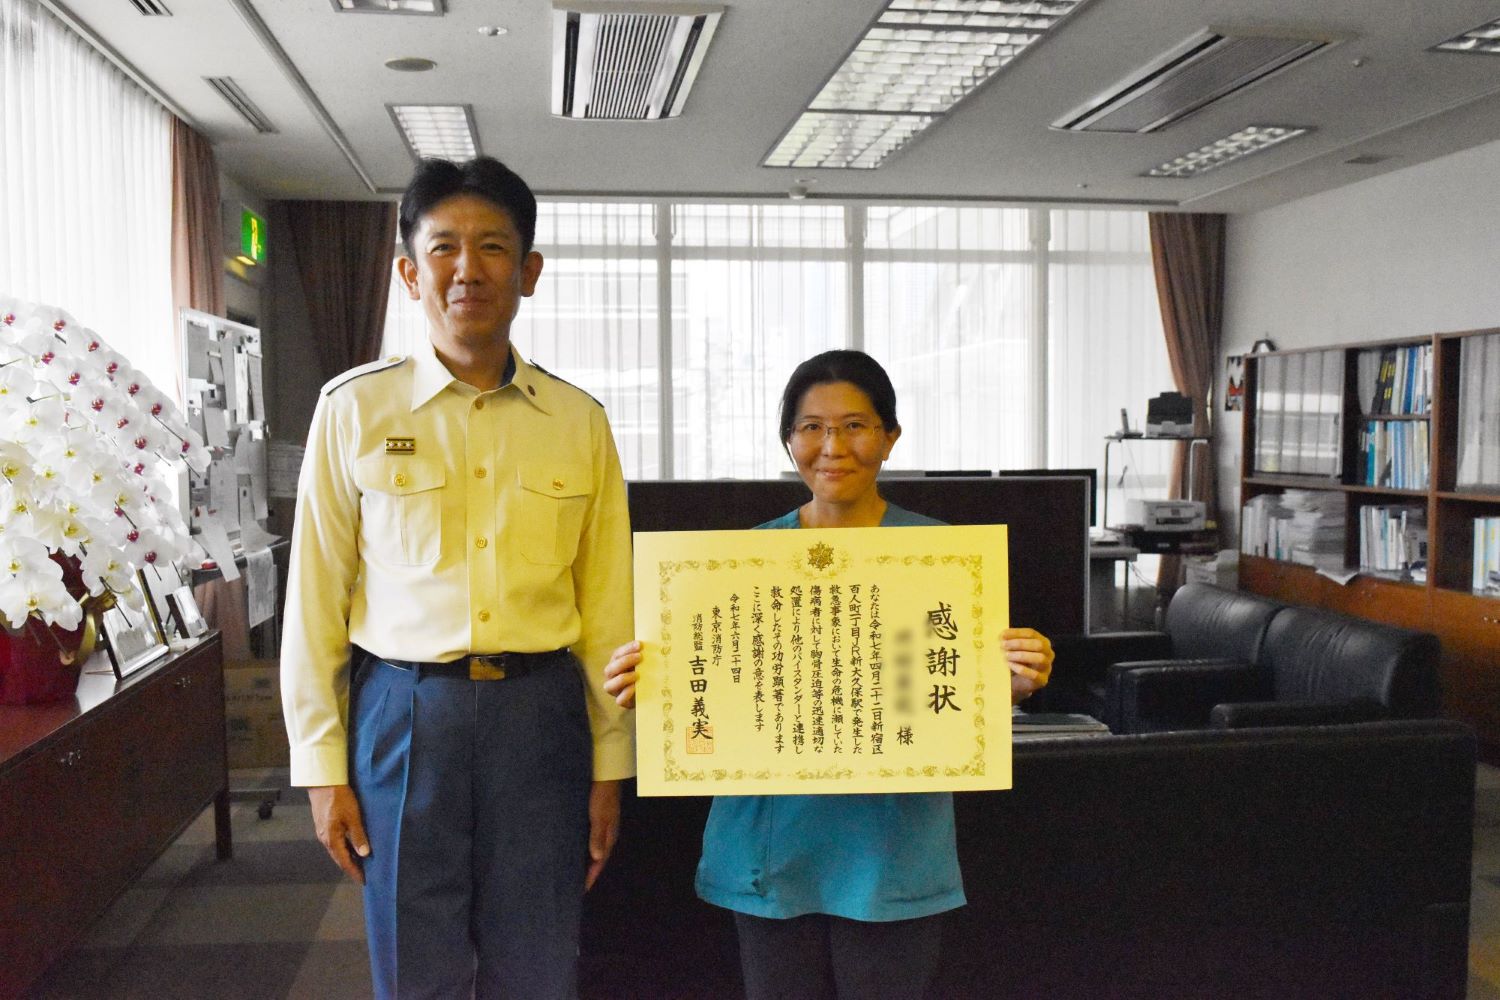 感謝状
様
あなたは令和七年四月二十二日新宿区
百人町一丁目JR新大久保駅で発生した
救急事象において生命の危機に瀕していた
傷病者に対して胸骨圧迫等の迅速適切な
処置により他のバイスタンダーと連携し
救命したその功労顕著であります
ここに深く感謝の意を表します
令和七年六月二十四日
東京消防庁
消防総監 吉田義実